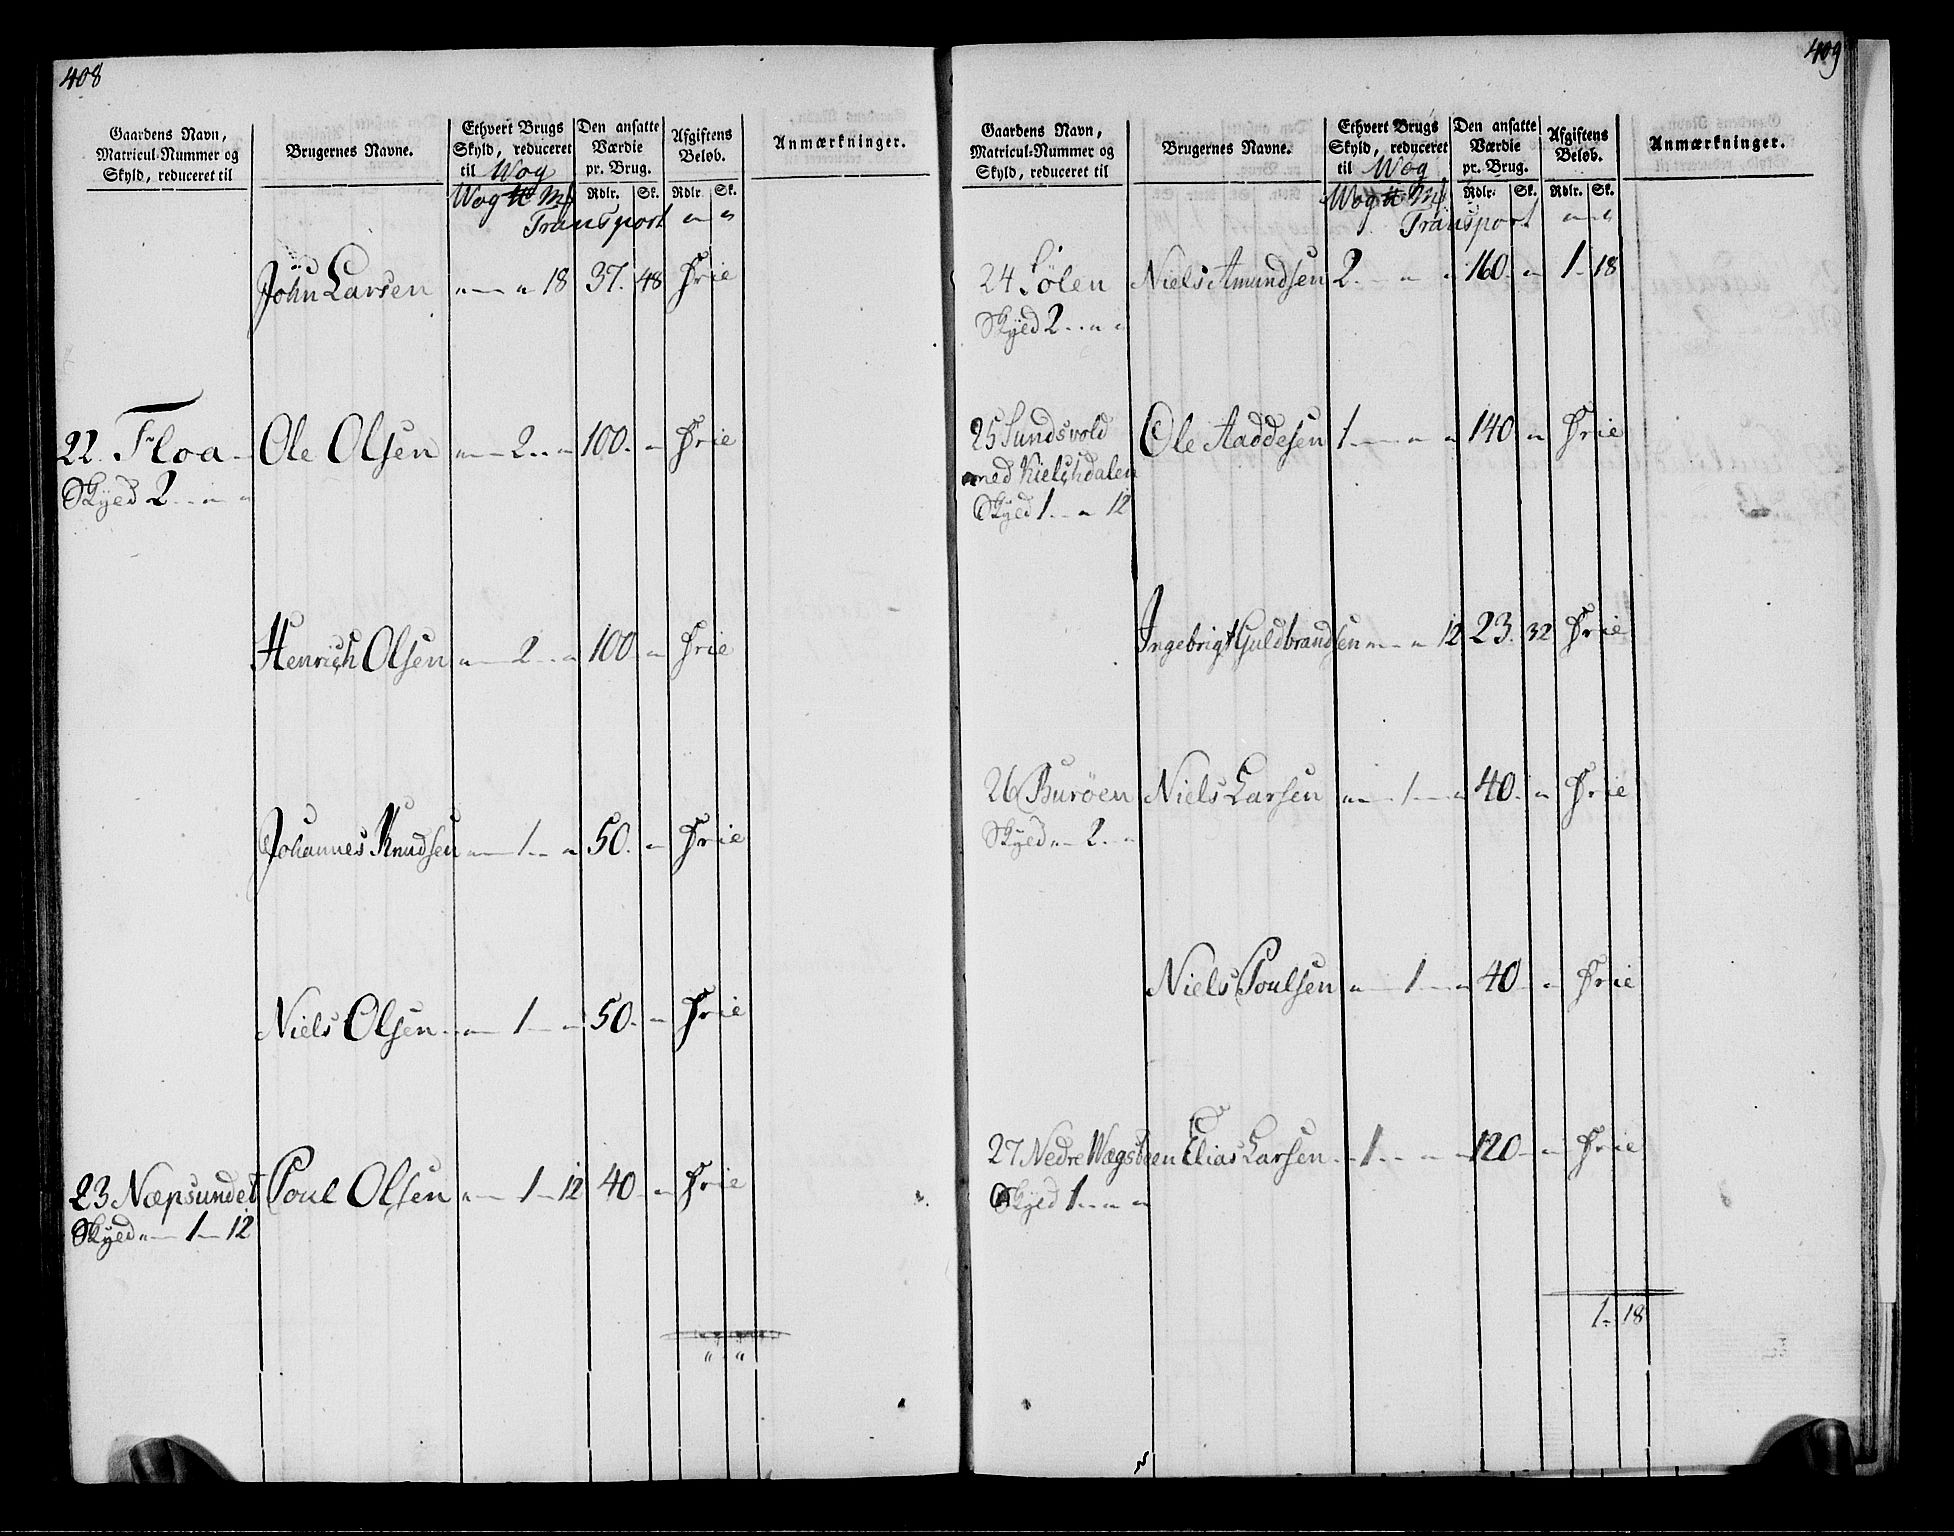 408
Gaardens Navn, Matricul-Nummer og Skyld, reduceret til
Brugernes Navne.
Ethvert Brugs Skyld, reduceret til Wog
Den ansatte Værdie pr. Brug.
Afgiftens Beløb.
Anmærkninger.
Wog Mk Rdlr. Sk. Rdlr. Sk.
Transport " "
John Larsen " " 18 37. 48 Frie
22. Floa Ole Olsen " 2 " 100. " Frie
Skyld 2 " "
Henrich Olsen " 2 " 100 " Frie
Johannes Knudsen " 1 " 50. " Frie
Niels Olsen " 1 " 50. " Frie
23 Næpsundet Poul Olsen " 1 12 40 " Frie
Skyld " 1 12
" "
409
Gaardens Navn, Matricul-Nummer og Skyld, reduceret til
Brugernes Navne.
Ethvert Brugs Skyld, reduceret til Wog
Den ansatte Værdie pr. Brug.
Afgiftens Beløb.
Anmærkninger.
Wog Mk Rdlr. Sk. Rdlr. Sk.
Transport " "
24 Sølen Niels Amundsen 2 " " 160. " 1 18
Skyld 2 " "
25 Sundsvold Ole Aaddesen 1 " " 140 " Frie
med Kielshdalen
Skyld 1 " 12
Ingebrigt Guldbrandsen " " 12 23. 32 Frie
26 Burøen Niels Larsen " 1 " 40. " Frie
Skyld " 2 "
Niels Poulsen " 1 " 40 " Frie
27 Nedre Wægsteen Elias Larsen 1 " " 120 " Frie
Skyld 1 " "
1 18